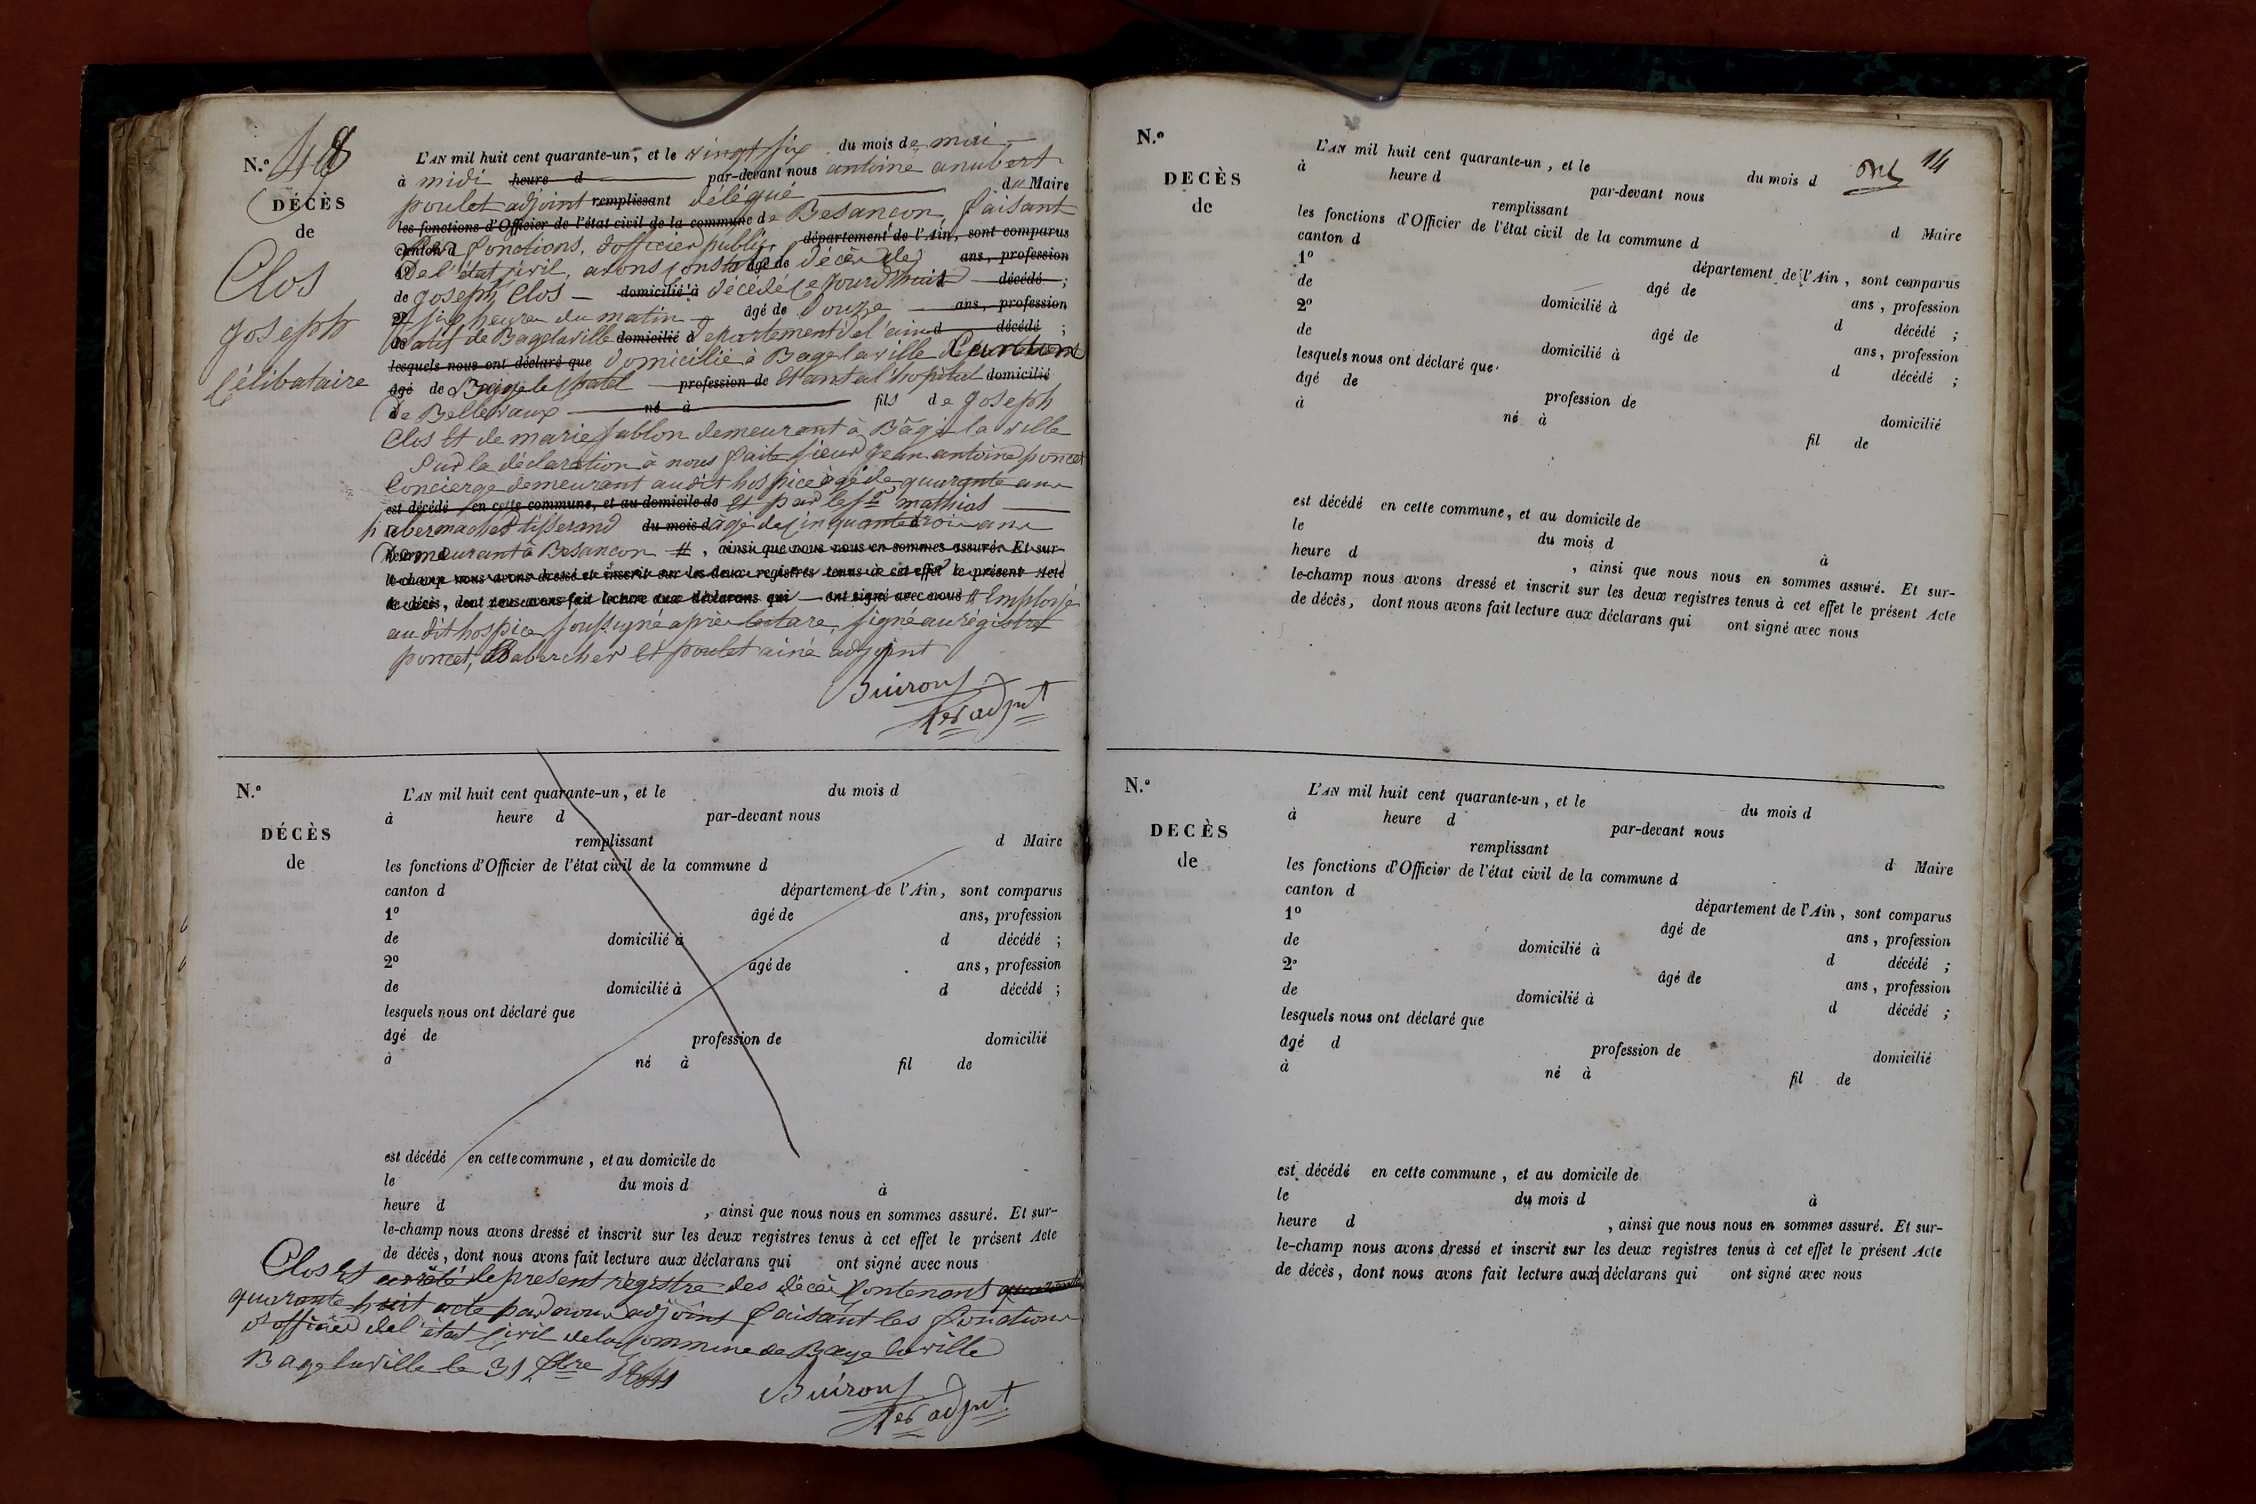 N.º 48
DÉCÈS
de
Clos
Joseph
Célibataire
L'AN mil huit cent quarante-un, et le vingt six du mois de mai
à midi heure d par-devant nous antoine anubert
poulet adjoint remplissant délégué du Maire
les fonctions d'Officier de l'état civil de la commune de Besancon, faisant
canton d fonctions, d'officier public département de l'Ain, sont comparus
1º De l'état civil, avons constaté âgé de le décès de ans, profession
de Joseph Clos domicilié à décédé ce jourd'huit décédé ;
2º à six heures du matin âgé de Douze ans, profession
de natif de Bagelaville domicilié à département de l'ain d décédé ;
lesquels nous ont déclaré que domicilié à Bagelaville Canton
âgé de de Baugé le Chatel profession de Etant à l'hopital domicilié
à de Bellevaux né à fils de Joseph
Clos et de marie Sablon demeurant à Bâgé la ville
Sur la déclaration à nous faite sieur Jean antoine poncet
Concierge demeurant audit hospice âgé de quarante ans
est décédé en cette commune, et au domicile de et par le sr mathias
habermacher tisserand du mois d âgé de cinquante trois ans
heure d Demeurant à Besancon #, ainsi que nous nous en sommes assuré. Et sur-
le-champ nous avons dressé et inscrit sur les deux registres tenus à cet effet le présent Acte
de décès, dont nous avons fait lecture aux déclarans qui ont signé avec nous # Employé
au dit hospice soussigné après lecture, signé au régistre
poncet, Habercher et poulet ainé adjoint
Buiron
1er adjnt
N.º
DÉCÈS
de
L'AN mil huit cent quarante-un, et le du mois d
à heure d par-devant nous
remplissant d Maire
les fonctions d'Officier de l'état civil de la commune d
canton d département de l'Ain, sont comparus
1º âgé de ans, profession
de domicilié à d décédé ;
2º âgé de ans, profession
de domicilié à d décédé ;
lesquels nous ont déclaré que
âgé de profession de domicilié
à né à fil de
est décédé en cette commune, et au domicile de
le du mois d à
heure d , ainsi que nous nous en sommes assuré. Et sur-
le-champ nous avons dressé et inscrit sur les deux registres tenus à cet effet le présent Acte
de décès, dont nous avons fait lecture aux déclarans qui ont signé avec nous
Clos et arrêté le present régistre des décès Contenant quarante
quarante huit acte par nous adjoint faisant les fonctions
d'officier de l'état civil de la Commune de Bage la ville
Bage la ville le 31 Xbre 1841
Buiron
1er adjnt
14
N.º
DECÈS
de
L'AN mil huit cent quarante-un, et le du mois d
à heure d par-devant nous
remplissant d Maire
les fonctions d'Officier de l'état civil de la commune d
canton d département de l'Ain, sont comparus
1º âgé de ans, profession
de domicilié à d décédé ;
2º âgé de ans, profession
de domicilié à d décédé ;
lesquels nous ont déclaré que
âgé de profession de domicilié
à né à fil de
est décédé en cette commune, et au domicile de
le du mois d à
heure d , ainsi que nous nous en sommes assuré. Et sur-
le-champ nous avons dressé et inscrit sur les deux registres tenus à cet effet le présent Acte
de décès, dont nous avons fait lecture aux déclarans qui ont signé avec nous
N.º
DECÈS
de
L'AN mil huit cent quarante-un, et le du mois d
à heure d par-devant nous
remplissant d Maire
les fonctions d'Officier de l'état civil de la commune d
canton d département de l'Ain, sont comparus
1º âgé de ans, profession
de domicilié à d décédé ;
2º âgé de ans, profession
de domicilié à d décédé ;
lesquels nous ont déclaré que
âgé d profession de domicilié
à né à fil de
est décédé en cette commune, et au domicile de
le du mois d à
heure d , ainsi que nous nous en sommes assuré. Et sur-
le-champ nous avons dressé et inscrit sur les deux registres tenus à cet effet le présent Acte
de décès, dont nous avons fait lecture aux déclarans qui ont signé avec nous